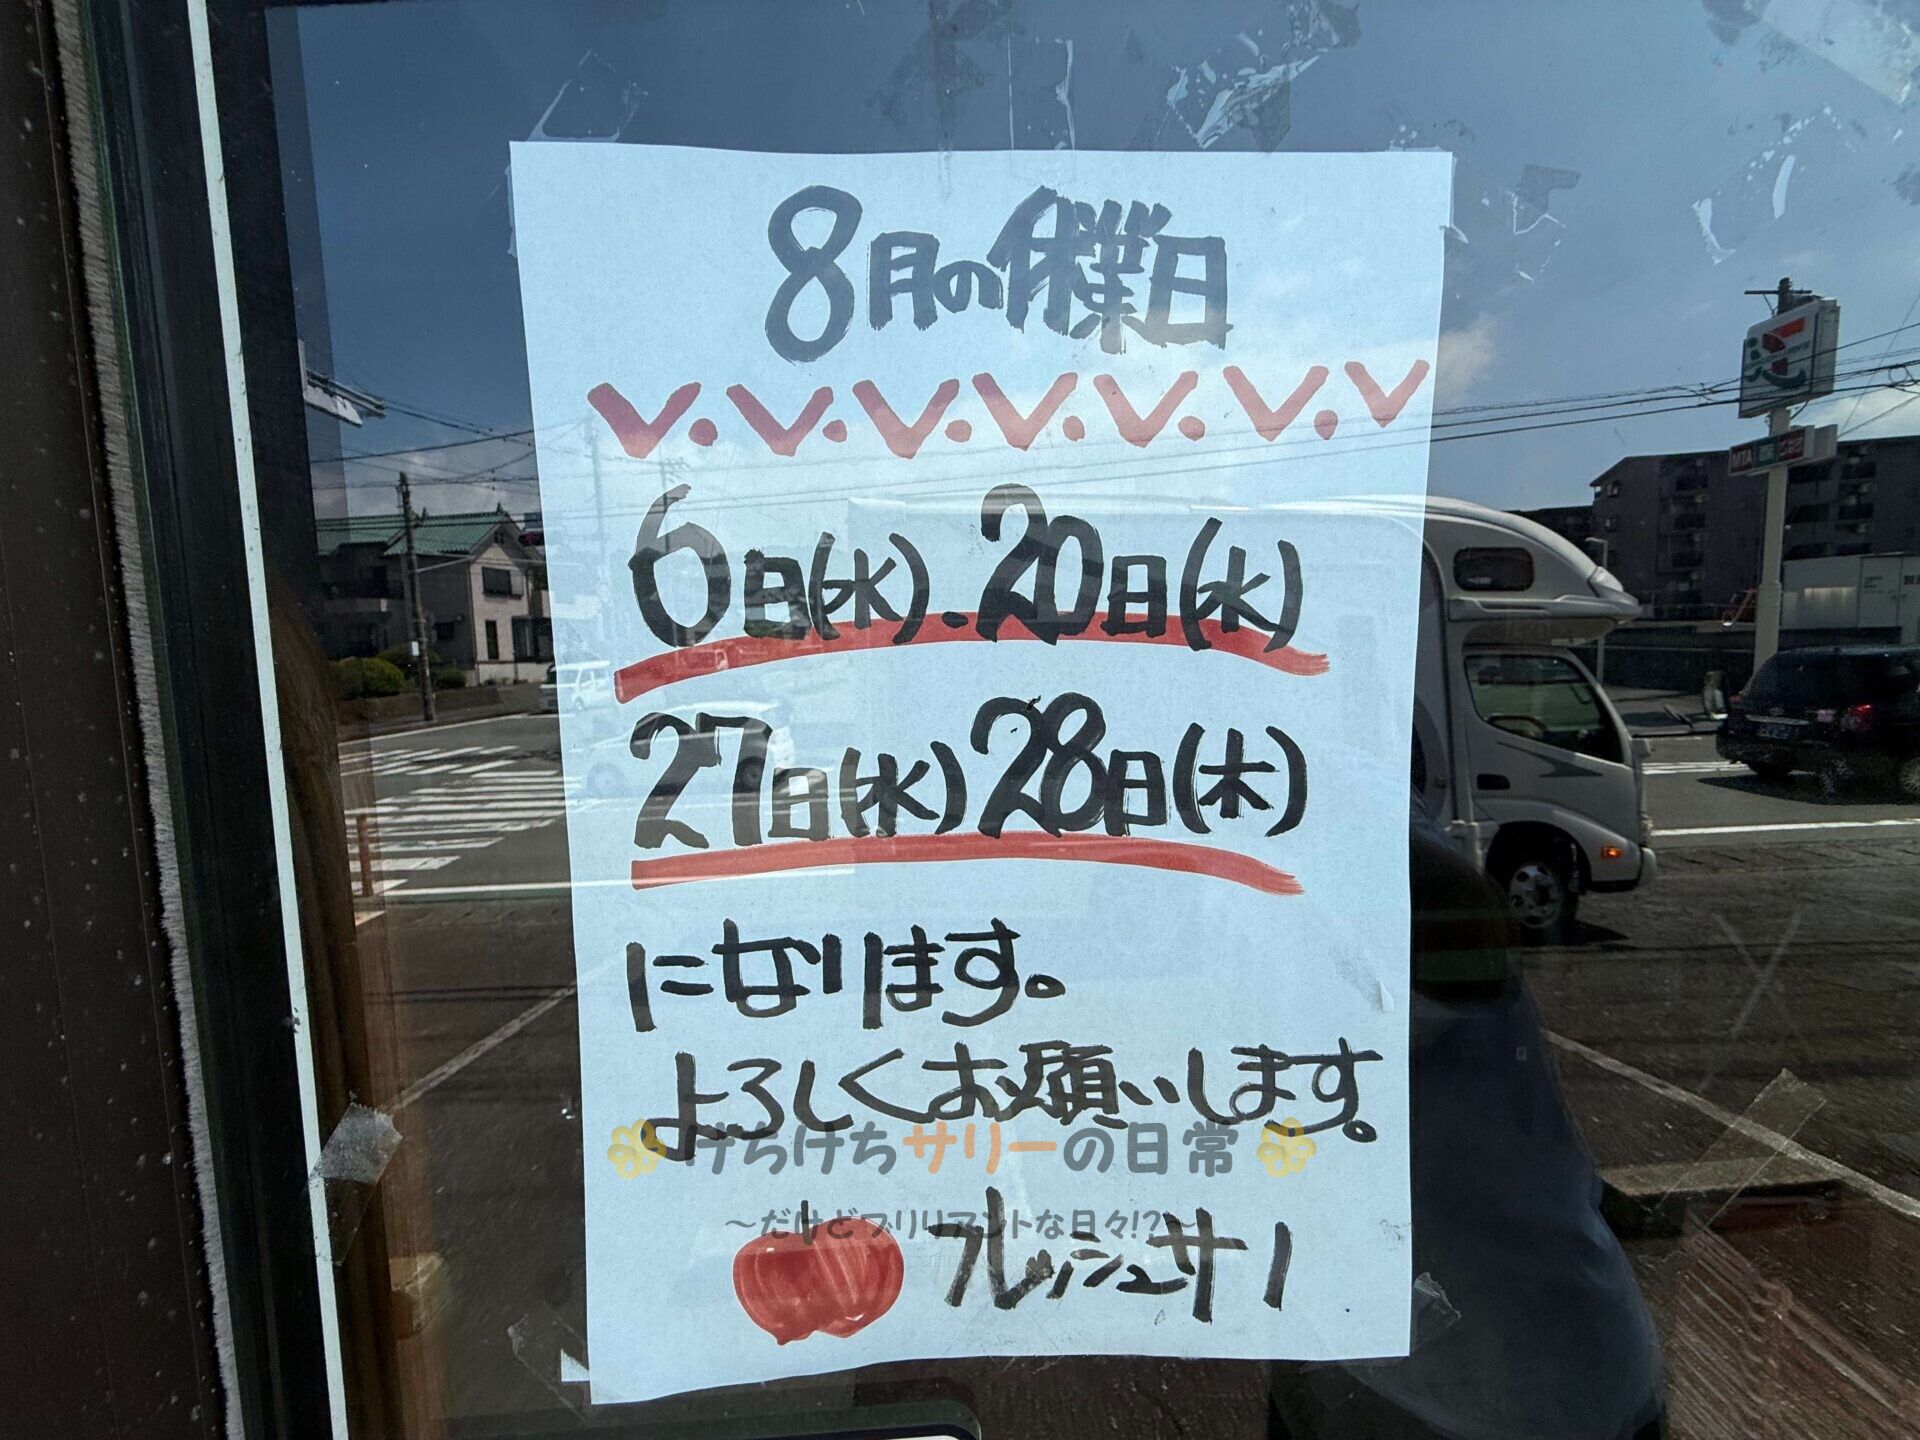 8月の休業日
6日(水)．20日(水)
27日(水)28日(木)
になります。
よろしくお願いします。
げちけちサリーの日常
～だけどブリリアントな日々!?～
フレッシュサノ
MTA